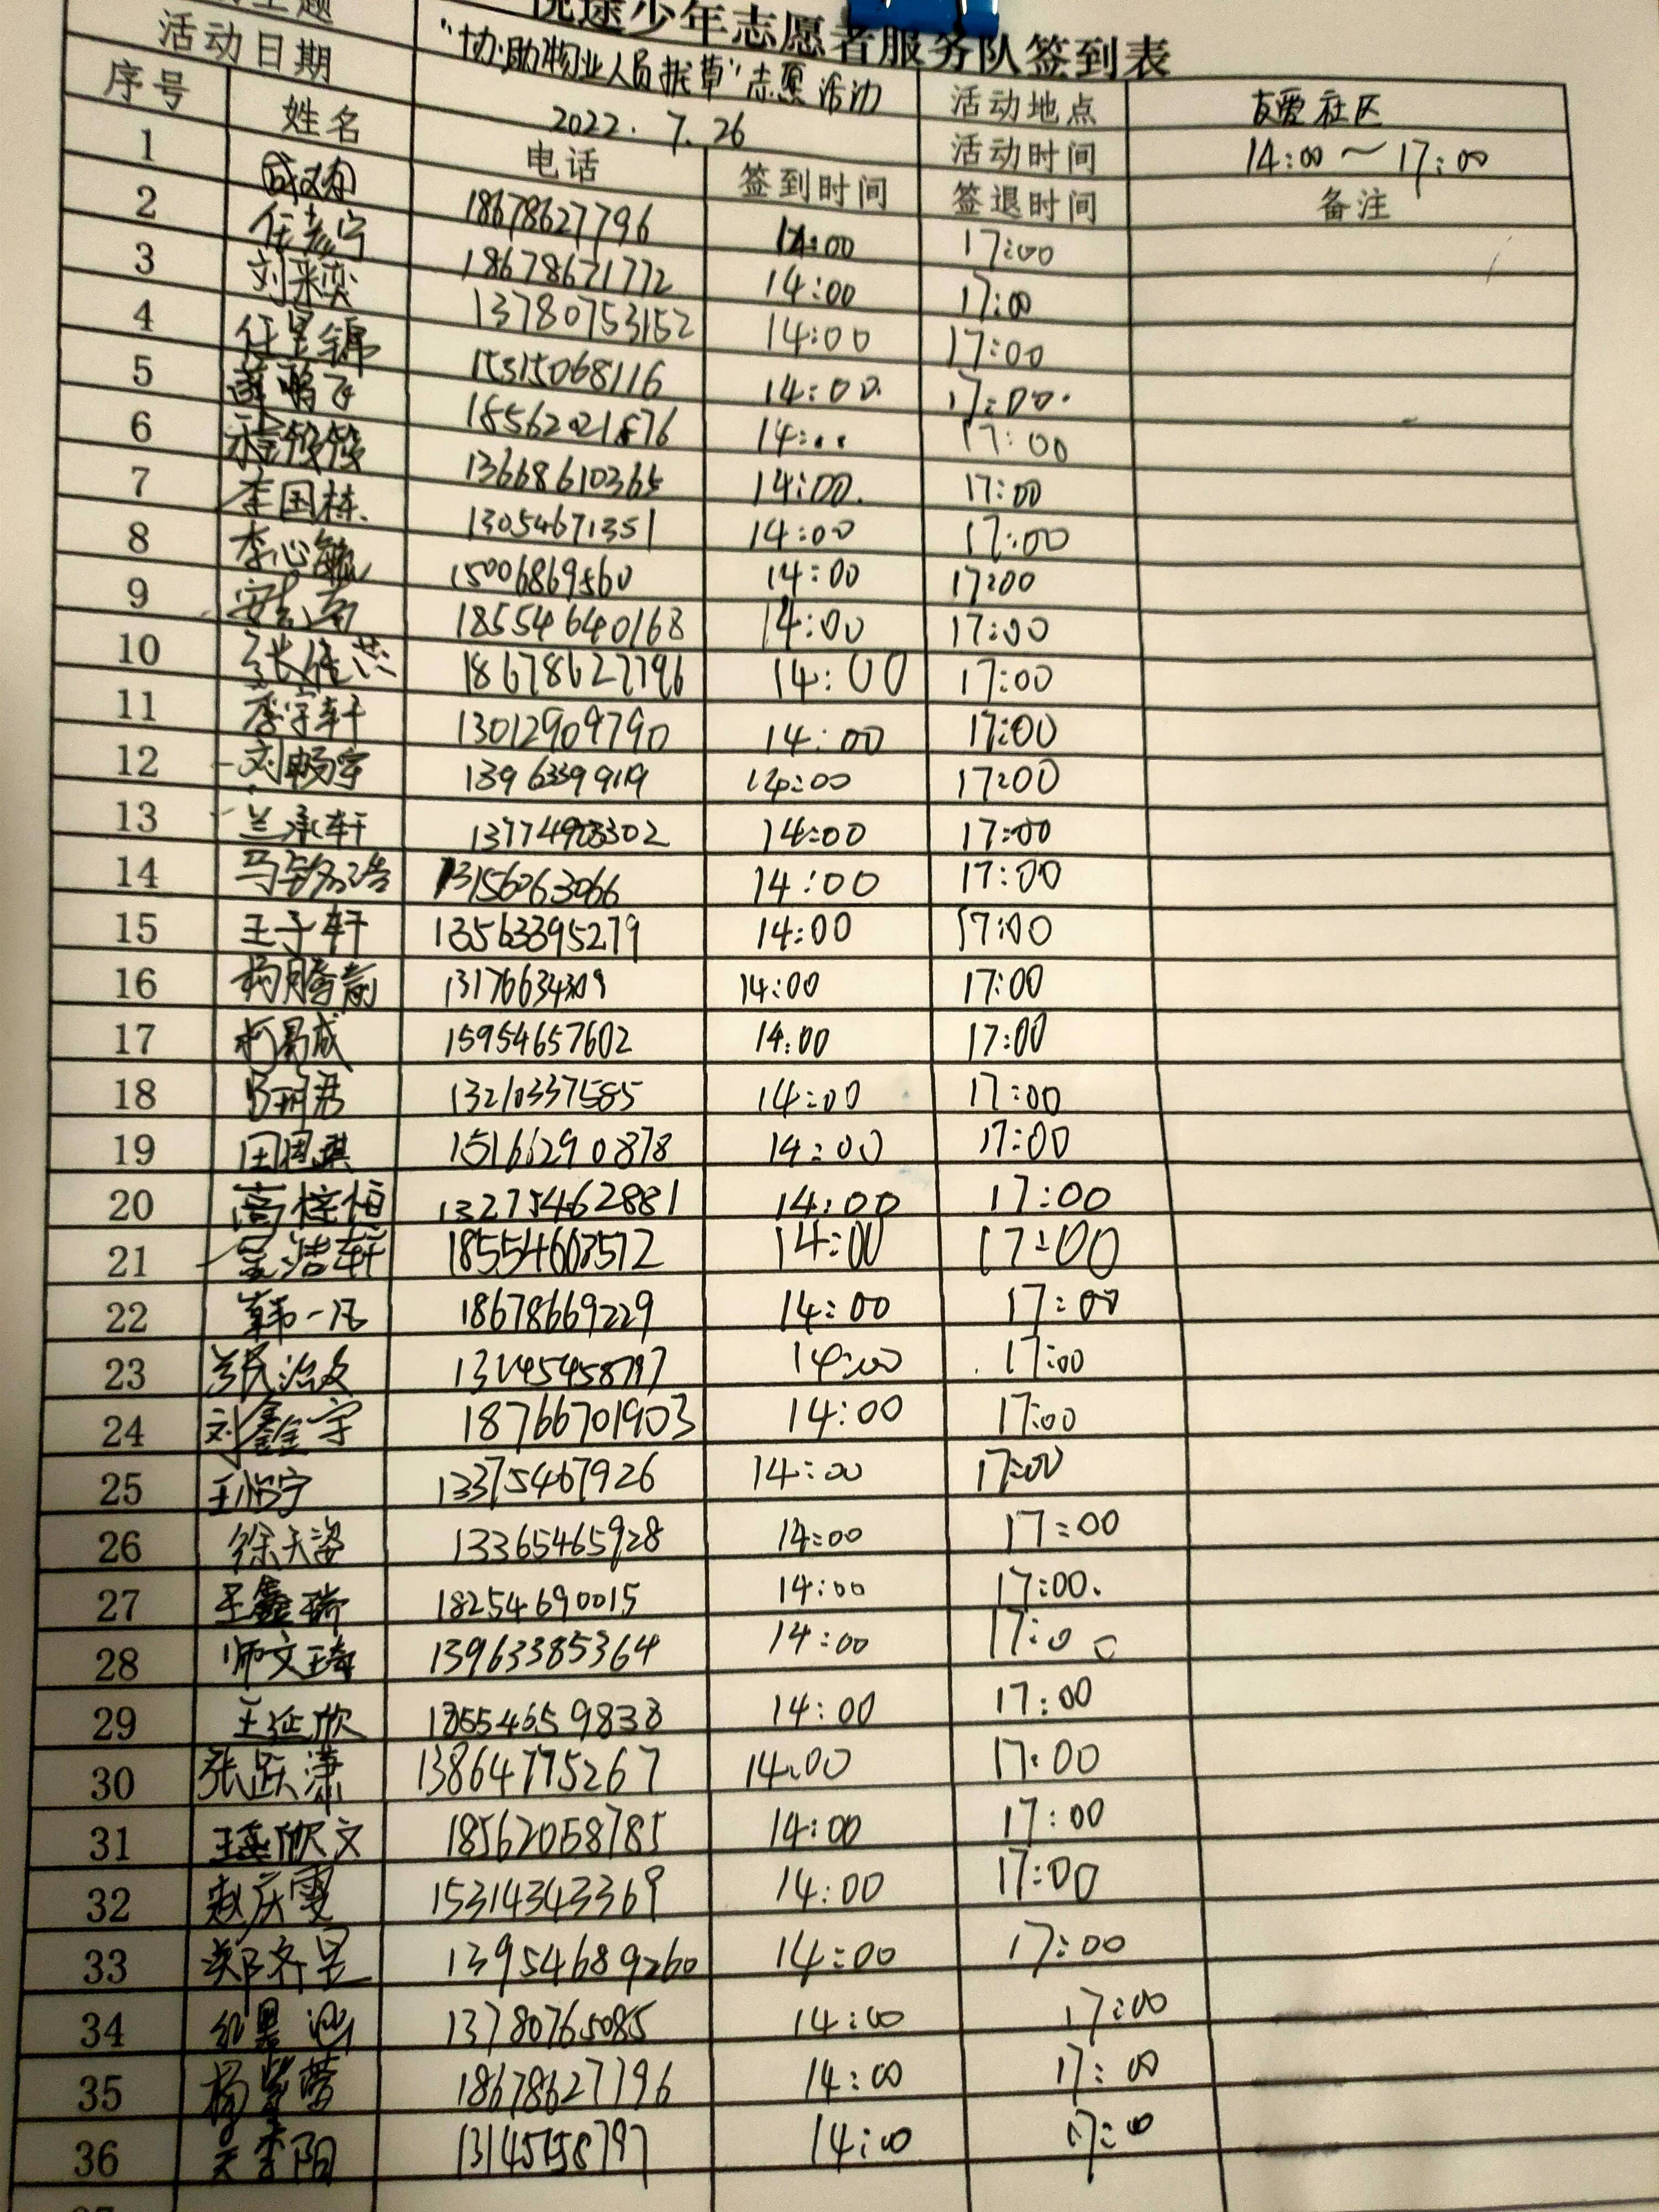 途少年志愿者服务队签到表
主题 "协助物业人员拔草"志愿活动 活动地点 友爱社区
活动日期 2022.7.26 活动时间 14:00～17:00
序号 姓名 电话 签到时间 签退时间 备注
1 18678627796 14:00 17:00
2 18678671772 14:00 17:00
3 刘采奕 13780753152 14:00 17:00
4 任昱锦 15315068116 14:00 17:00
5 14:00 17:00
6 13668610365 14:00 17:00
7 李国栋 13054671351 14:00 17:00
8 李心毓 15006869560 14:00 17:00
9 18554640168 14:00 17:00
10 18678627796 14:00 17:00
11 李宇轩 13012909790 14:00 17:00
12 刘畅宇 14:00 17:00
13 兰承轩 14:00 17:00
14 13156063066 14:00 17:00
15 王子轩 13563395279 14:00 17:00
16 14:00 17:00
17 15954657602 14:00 17:00
18 13210337585 14:00 17:00
19 15166290878 14:00 17:00
20 高梓恒 13275462881 14:00 17:00
21 吴浩轩 18554603572 14:00 17:00
22 韩一凡 18678669229 14:00 17:00
23 14:00 17:00
24 刘鑫宇 18766701903 14:00 17:00
25 王怡宁 13375467926 14:00 17:00
26 徐天姿 13365465928 14:00 17:00
27 王鑫瑞 18254690015 14:00 17:00
28 师文琦 13963385364 14:00 17:00
29 王延欣 18554659838 14:00 17:00
30 张跃潇 13864775267 14:00 17:00
31 18562058785 14:00 17:00
32 赵庆雯 15314343369 14:00 17:00
33 郑齐昱 13954689260 14:00 17:00
34 13780765085 14:00 17:00
35 杨紫萱 18678627796 14:00 17:00
36 14:00 17:00